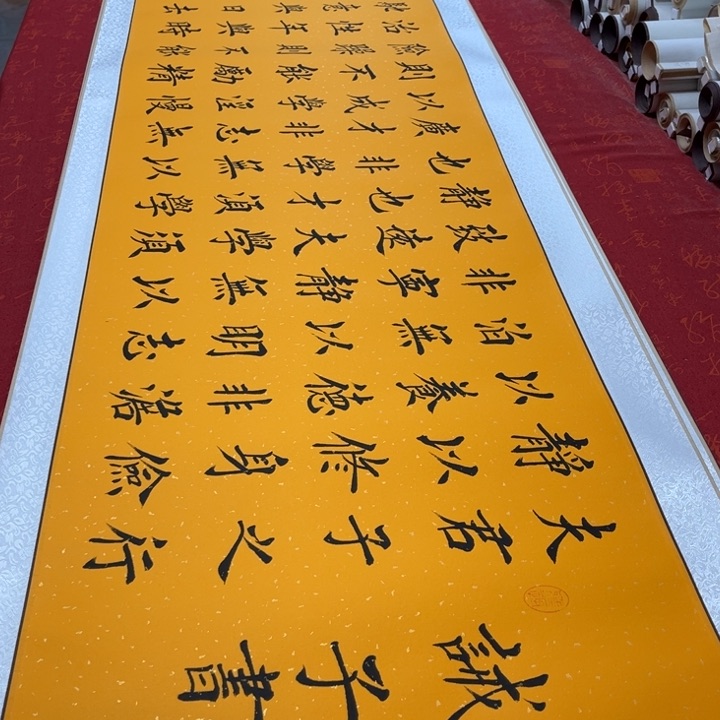 誡子書
夫君子之行
靜以修身儉
以養德非澹
泊無以明志
非寧靜無以
致遠夫學須
靜也才須學
也非學無以
廣才非志無
以成學淫慢
則不能勵精
險躁則不能
治性年與時
馳意與日去